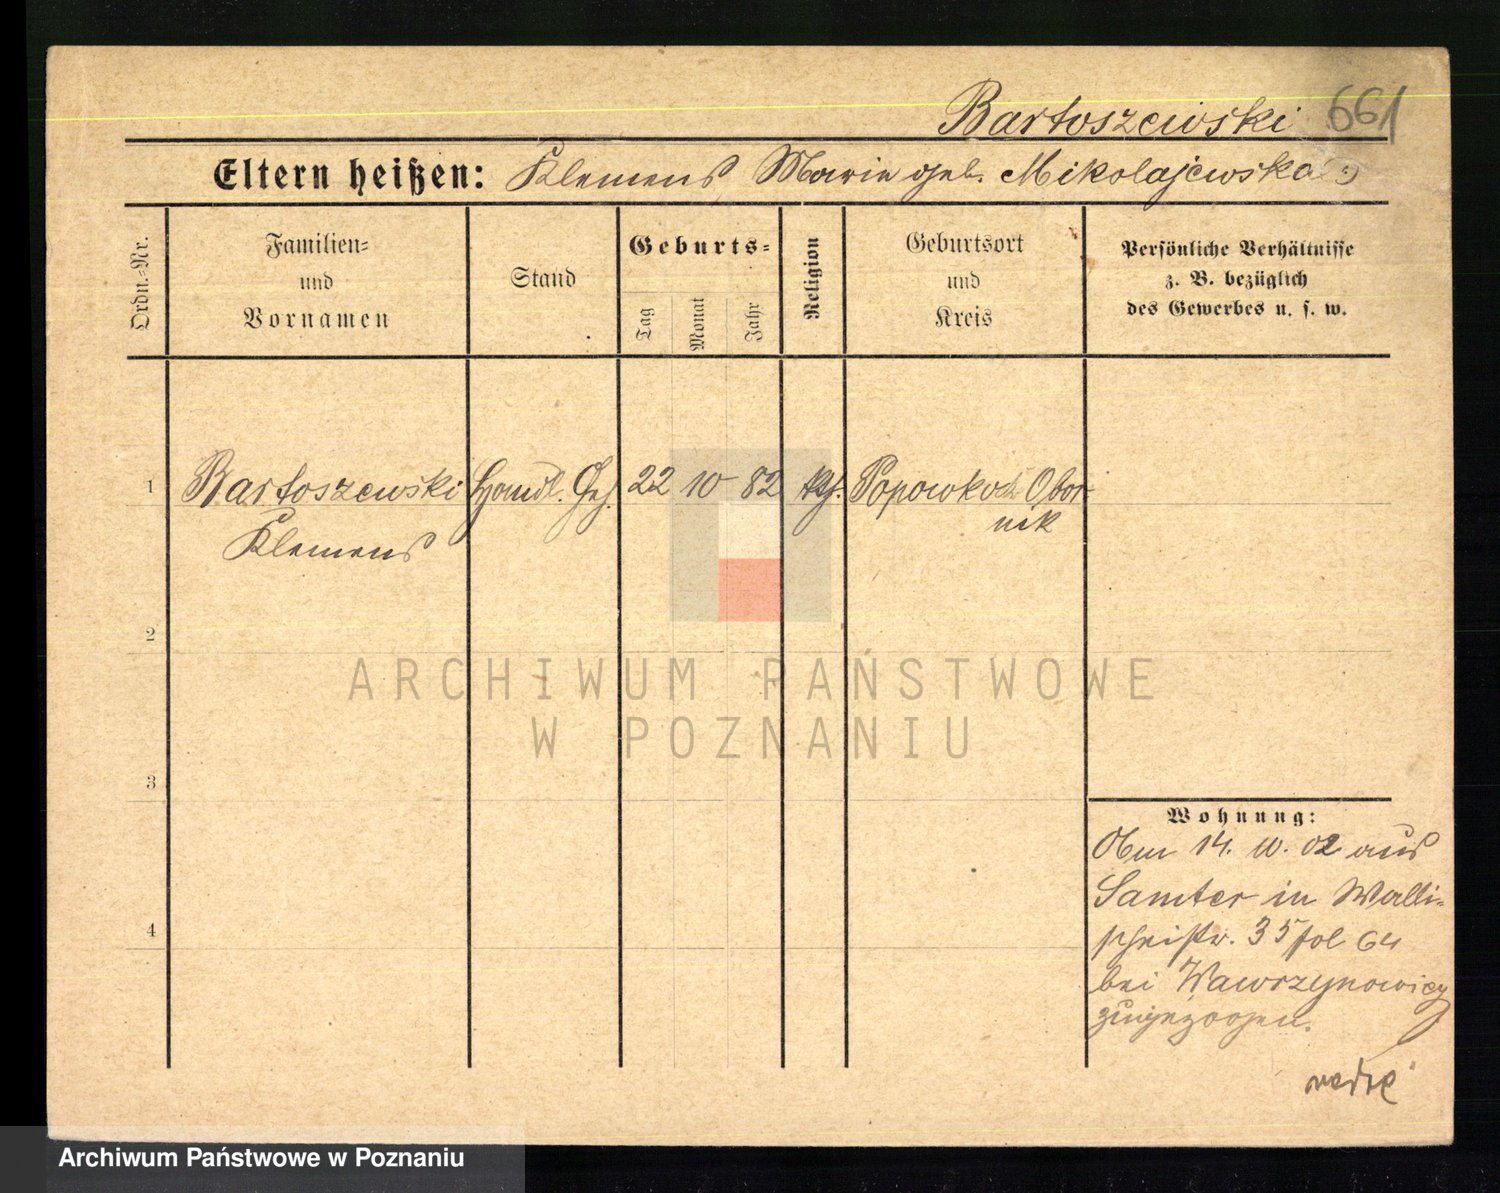 Bartoszewski 661
Eltern heißen: Klemens Marie geb. Mikolajewska
Ordn.=Nr.
Familien=
und
Vornamen
Stand
Geburts=
Tag
Monat
Jahr
Religion
Geburtsort
und
Kreis
Persönliche Verhältnisse
z. B. bezüglich
des Gewerbes u. s. w.
1 Bartoszewski Handl. Geh. 22 10 82 kth. Popowko Obor
nik
Klemens
2
3
4
Wohnung:
Obm 14. 10. 02 aus
Samter in Walli=
scheistr. 35 fol 64
bei Wawrzynowicz
zugezogen.
ARCHIWUM PAŃSTWOWE
W POZNANIU
Archiwum Państwowe w Poznaniu